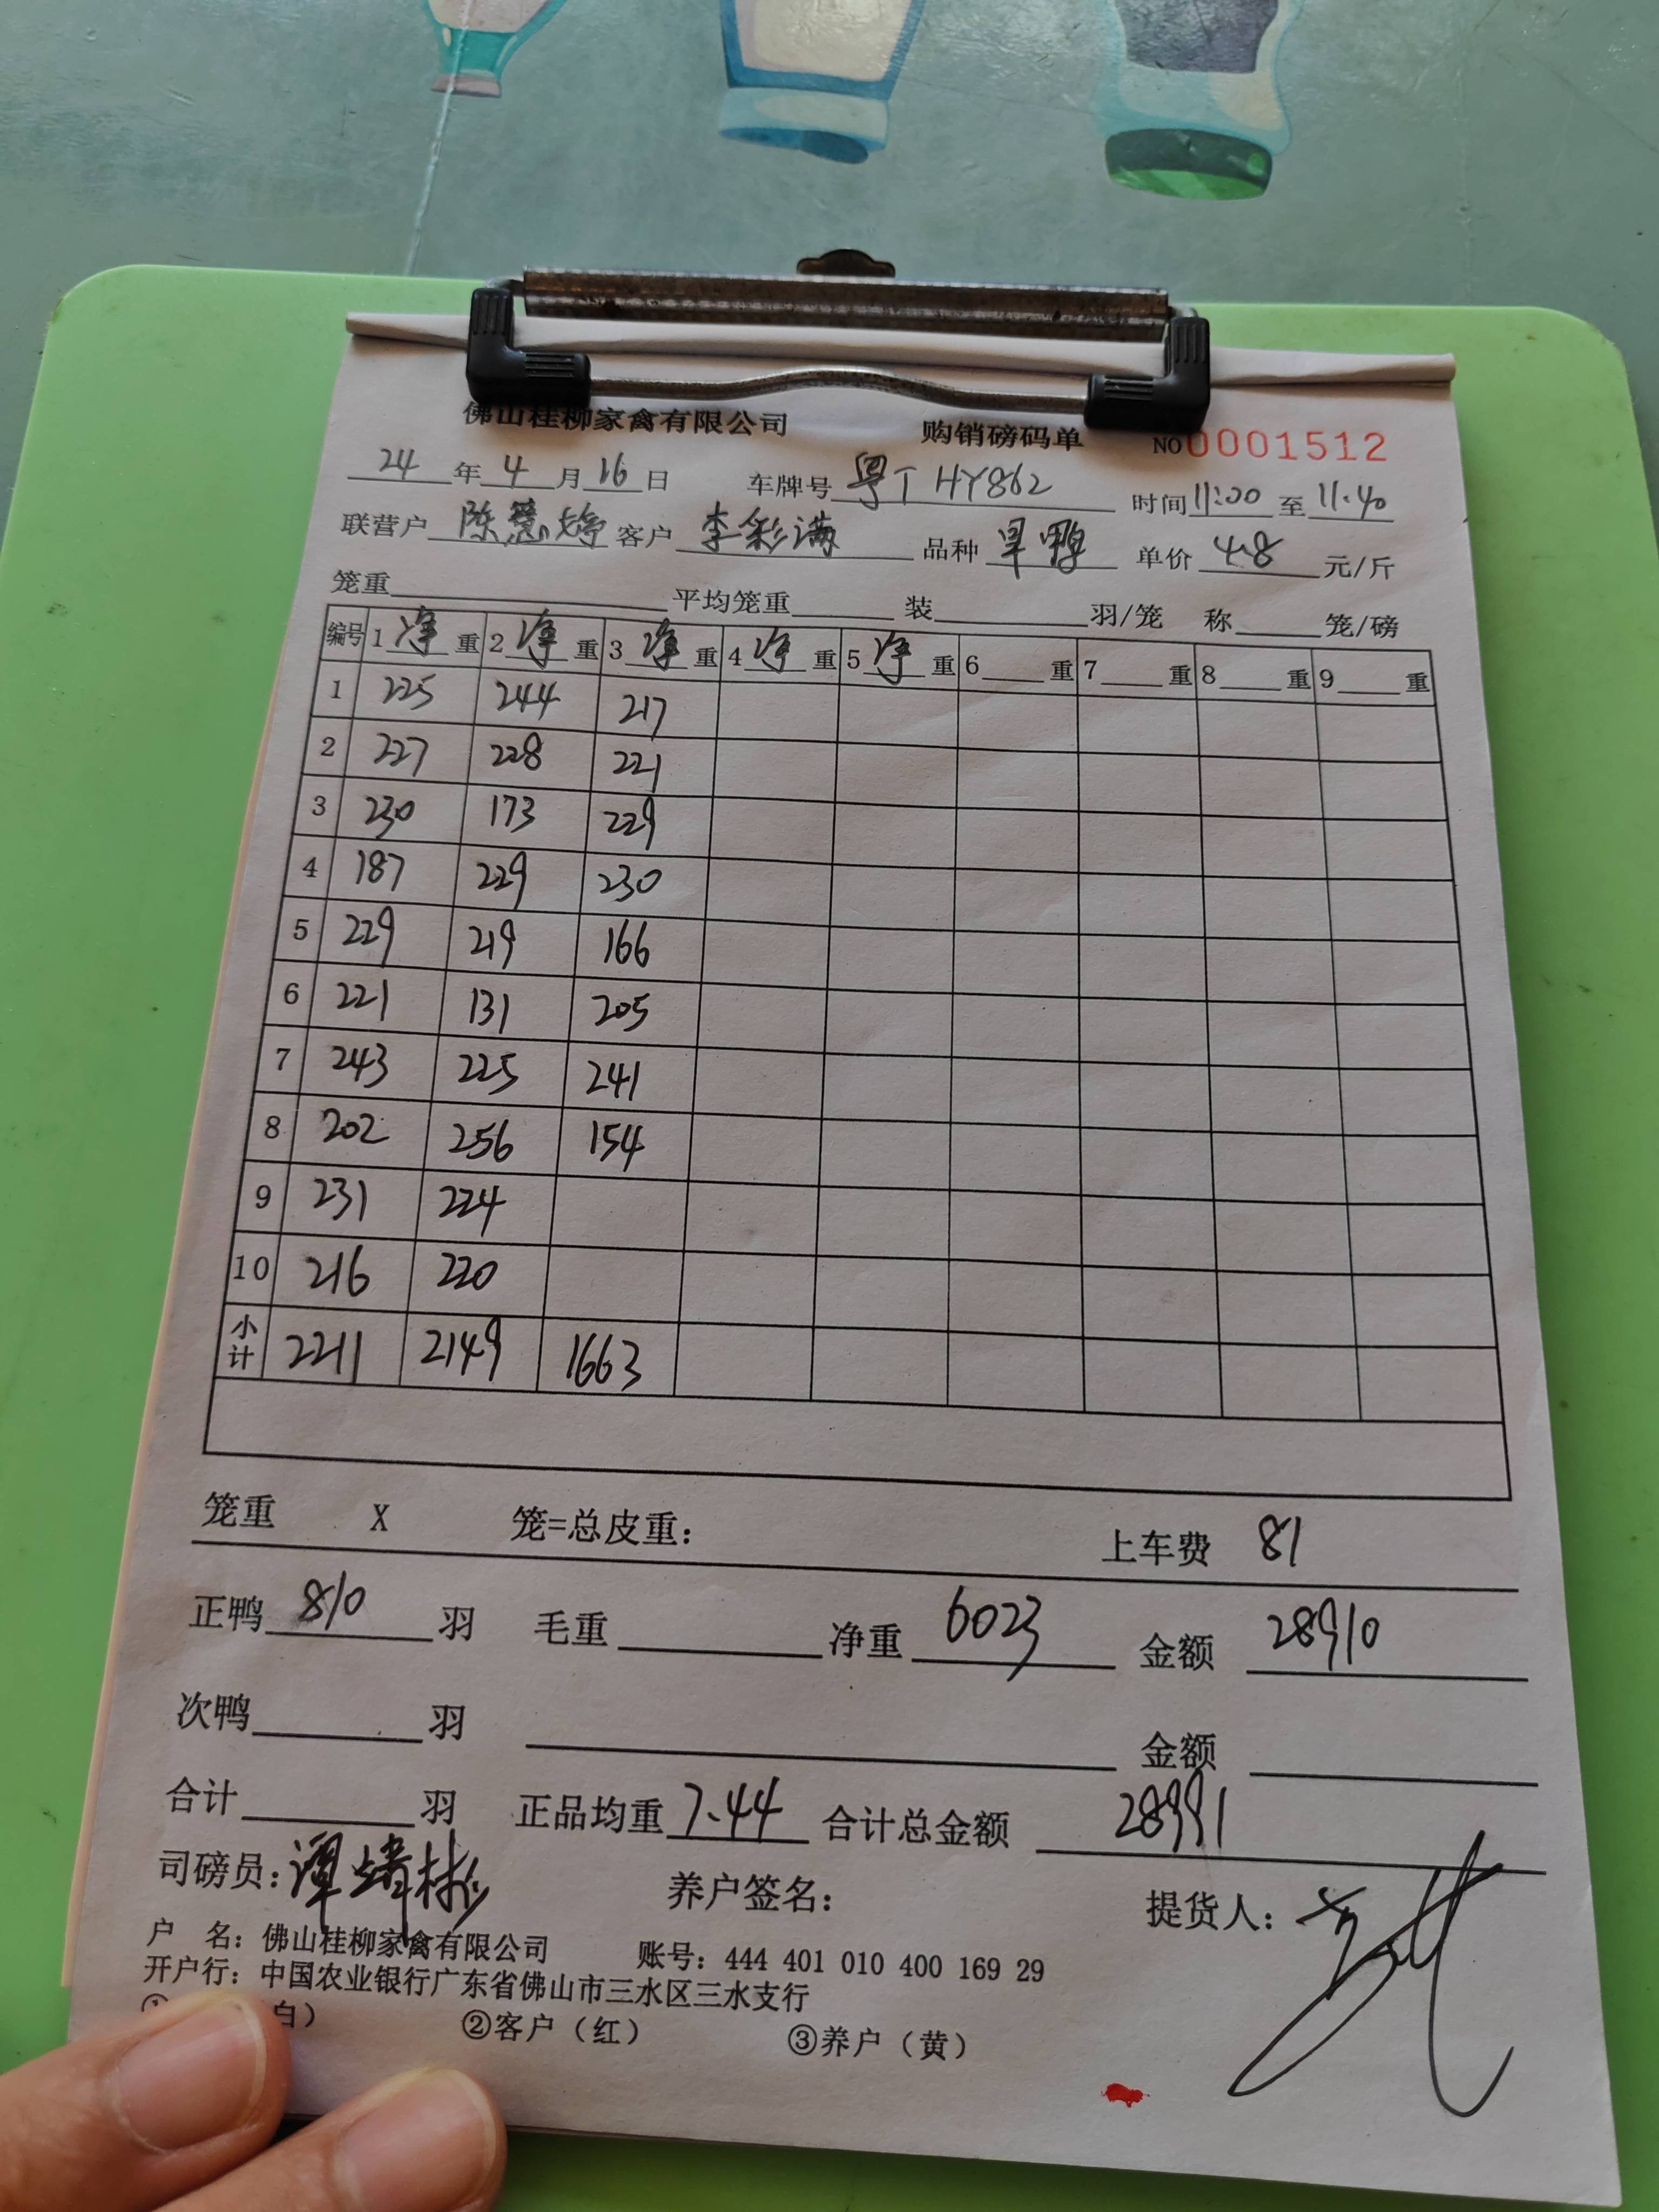 佛山桂柳家禽有限公司 购销磅码单 NO 0001512
24 年 4 月 16 日 车牌号 粤T HY862 时间 11:00 至 11:40
联营户 陈慧婷 客户 李彩满 品种 旱鸭 单价 4.8 元/斤
笼重 平均笼重 装 羽/笼 称 笼/磅
编号 1 净 重 2 净 重 3 净 重 4 净 重 5 净 重 6 重 7 重 8 重 9 重
1 225 244 217
2 227 228 221
3 230 173 229
4 187 229 230
5 229 219 166
6 221 131 205
7 243 225 241
8 202 256 154
9 231 224
10 216 220
小计 2211 2149 1663
笼重 X 笼=总皮重： 上车费 81
正鸭 810 羽 毛重 净重 6023 金额 28910
次鸭 羽 金额
合计 羽 正品均重 7.44 合计总金额 28991
司磅员： 养户签名： 提货人：
户 名：佛山桂柳家禽有限公司 账号：444 401 010 400 169 29
开户行：中国农业银行广东省佛山市三水区三水支行
白） ②客户（红） ③养户（黄）